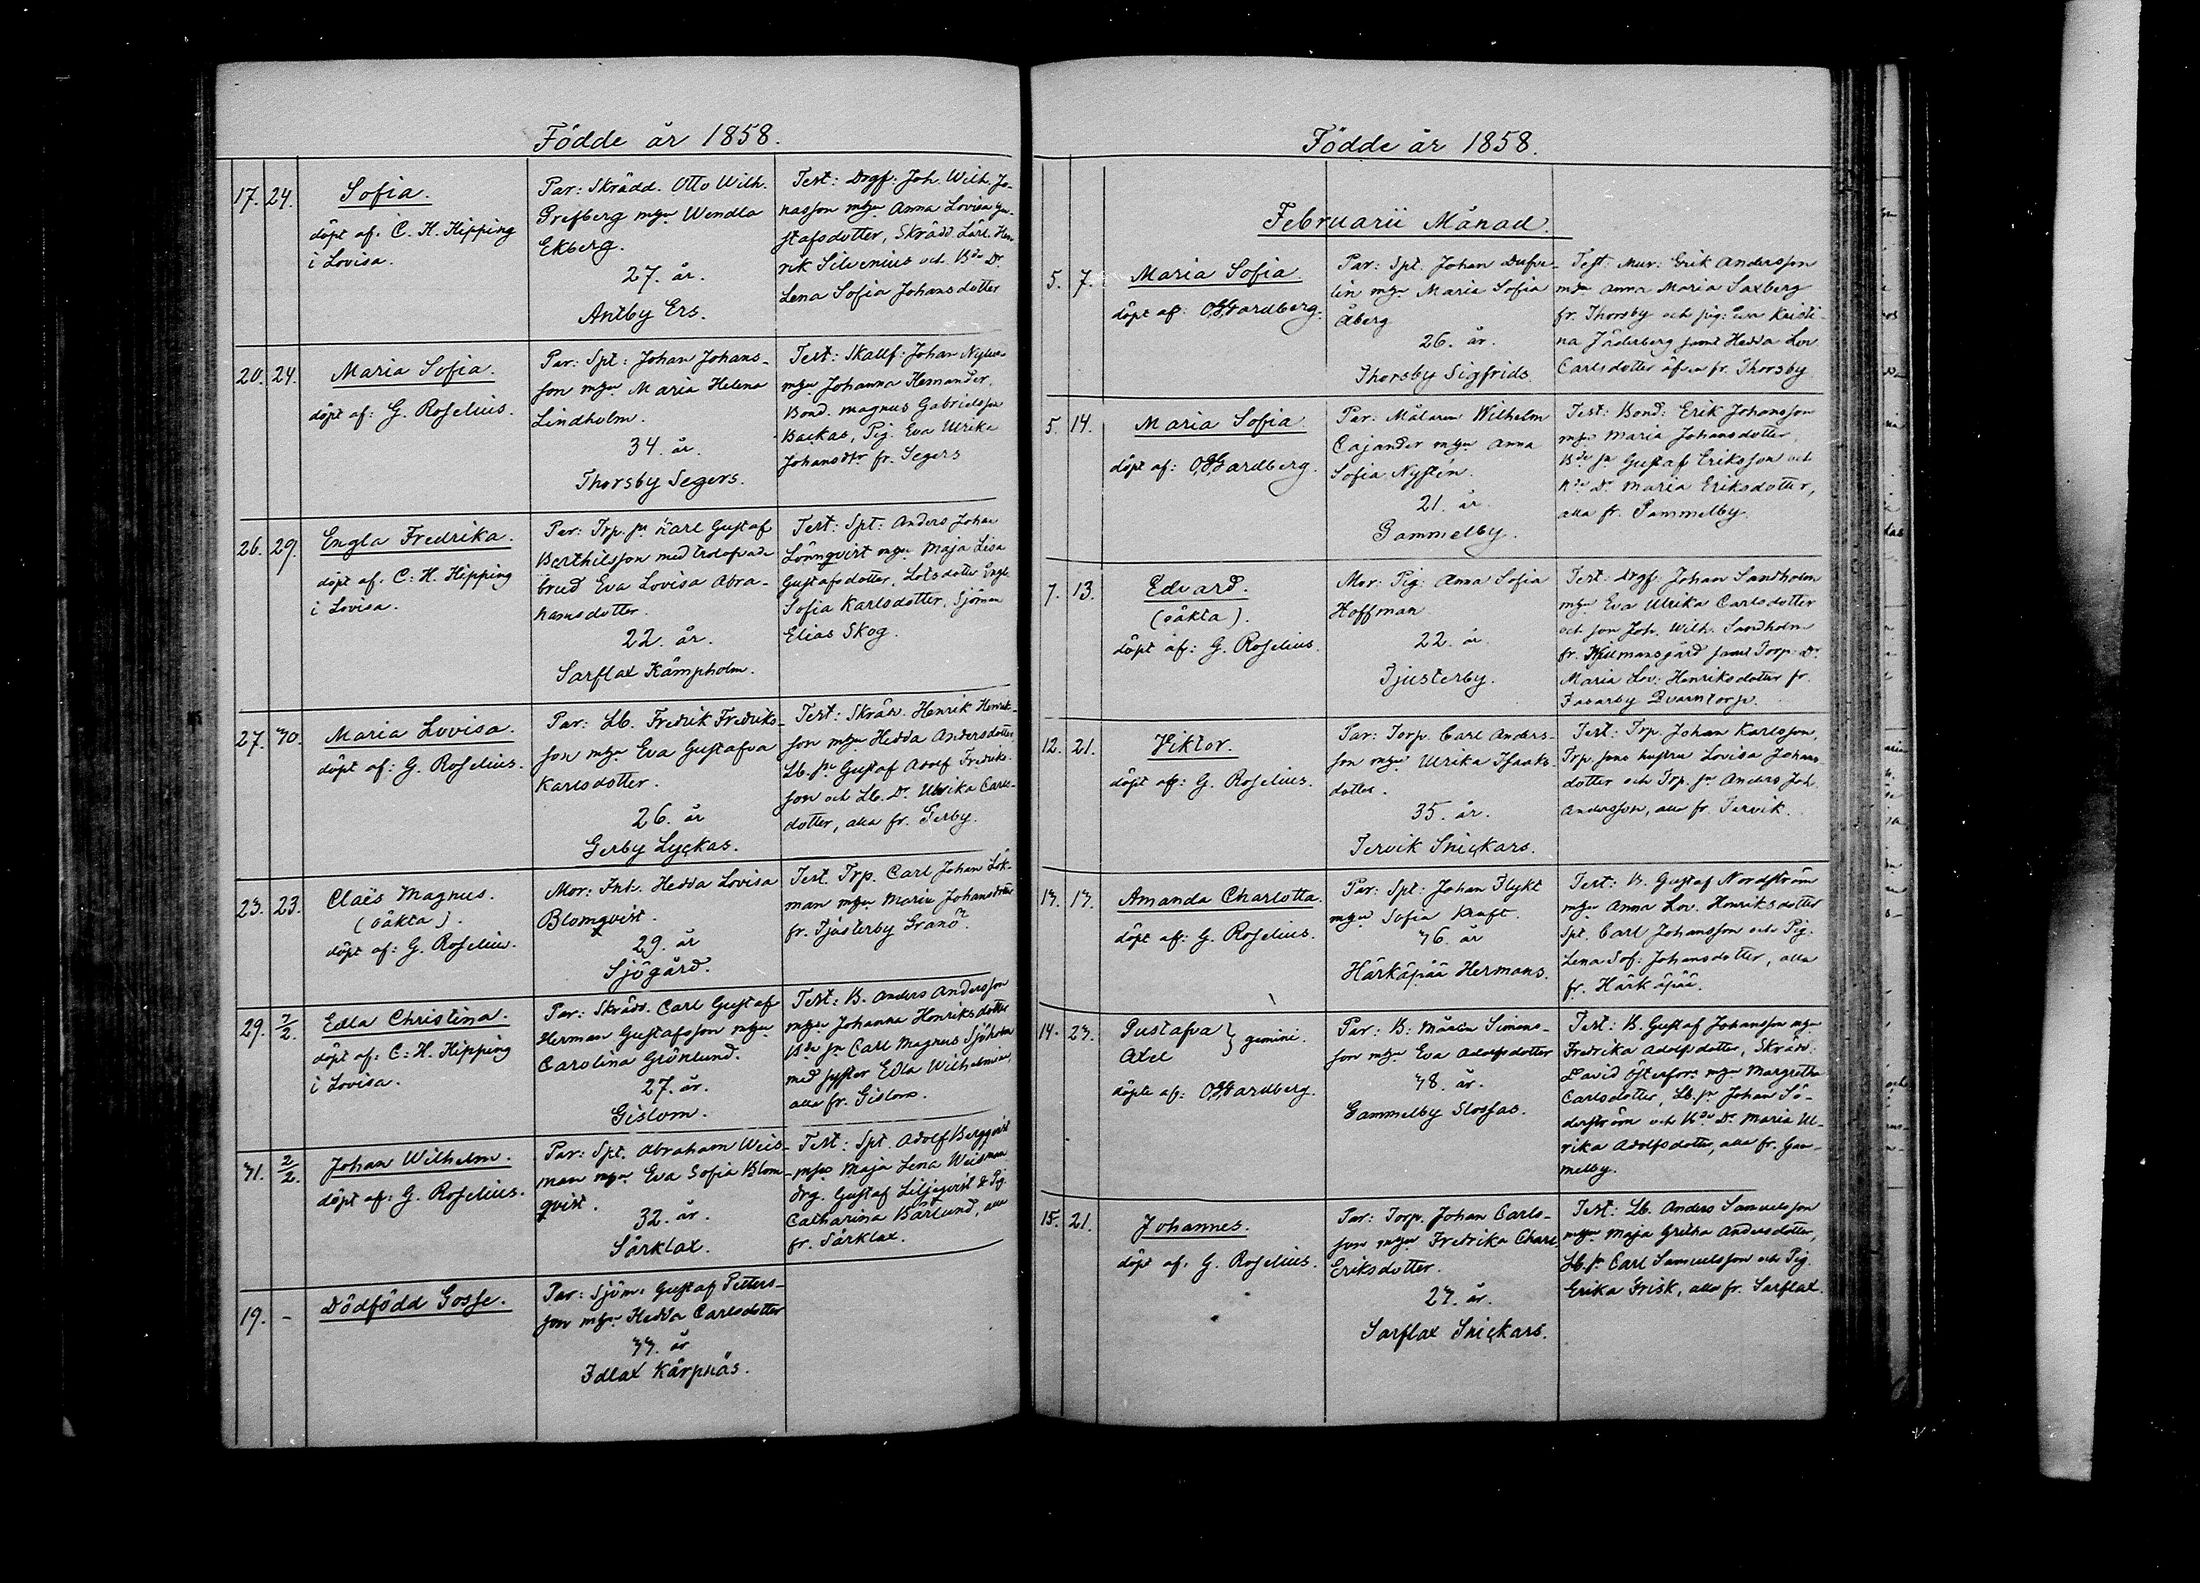 Födde år 1858.
17. 24.
Sofia.
döpt af: C. H. Hipping
i Lovisa.
Par: Skrädd. Otto Wilh.
Grefberg mhu Wendla
Ekberg.
27. år.
Antby Ers.
Test: Drgf: Joh. Wilh. Jo-
nasson mhu Anna Lovisa Gu-
stafsdotter, Skrädd Lärl. Hen
rik Silvenius och Bde Dr
Lena Sofia Johansdotter
20. 24.
Maria Sofia.
döpt af: G. Roselius.
Par: Spt: Johan Johans-
son mhu Maria Helena
Lindholm.
34. år.
Thorsby Segers.
Test: Skallf: Johan
mhu Johanna Hemander.
Bond. Magnus Gabrielsson
Backas, Pig. Eva Ulrika
Johansdtr fr. Segers
26. 29.
Engla Fredrika.
döpt af. C: H. Hipping
i Lovisa.
Par: Trp. sn Karl Gustaf
Berthilsson med trolofvade
brud Eva Lovisa Abra-
hamsdotter.
22. år.
Sarflax Kämpholm.
Test: Spt: Anders Johan
Lönnqvist mhu Maja Lisa
Gustafsdotter, Lotsdotter Engl.
Sofia Karlsdotter, Sjöman
Elias Skog.
27. 30.
Maria Lovisa.
döpt af: G. Roselius.
Par: Lb. Fredrik Fredriks-
son mhu Eva Gustafva
Karlsdotter.
26. år
Gerby Lyckas.
Test: Skräd. Henrik Henrik-
son mhu Hedda Andersdotter
Lb. sn Gustaf Adolf Fredriks-
son och Lb. Dr Ulrika Carls-
dotter, alla fr. Gerby.
23. 23.
Claës Magnus.
(oäkta).
döpt af: G. Roselius.
Mor: Inh. Hedda Lovisa
Blomqvist.
29. år
Sjögård.
Test. Trp. Carl Johan Lök-
man mhu Maria Johansdotter
fr. Tjusterby Granö.
29. 7/2.
Edla Christina.
döpt af: C: H. Hipping
i Lovisa.
Par: Skrädd. Carl Gustaf
Herman Gustafsson mhu
Carolina Grönlund.
27. år.
Gislom.
Test: B. Anders Andersson
mhu Johanna Henriksdotter
Bde sn Carl Magnus Sjöholm
med syster Edla Wilhelmina,
alla fr. Gislom.
31. 2/2.
Johan Wilhelm.
döpt af: G. Roselius.
Par: Spt. Abraham Weis-
man mhu Eva Sofia Blom
qvist.
32. år.
Särklax.
Test: Spt. Adolf Bergqvist
mhu Maja Lena Weisman
Drg. Gustaf Liljeqvist & Pig.
Catharina Bärlund, alla
fr. Särklax.
19. -
Dödfödd Gosse.
Par: Sjöm: Gustaf Petters-
son mhu Hedda Carlsdotter
33. år
Idlax Kärpnäs.
Födde år 1858.
Februarii Månad.
5. 7.
Maria Sofia.
döpt af: O. Gardberg.
Par: Spt. Johan Dufve-
lin mhu Maria Sofia
Åberg
26. år.
Thorsby Sigfrids.
Test: Mur: Erik Andersson
mhu Anna Maria Saxberg
fr. Thorsby och pig: Eva Kristi-
na Jäderberg samt Hedda Lov.
Carlsdotter äfven fr. Thorsby
5. 14.
Maria Sofia.
döpt af: O. Gardberg.
Par: Målaren Wilhelm
Cajander mhu Anna
Sofia Nystén.
21. år
Gammelby.
Test: Bond: Erik Johansson
mhu Maria Johansdotter,
Bde sn Gustaf Eriksson och
Bde Dr Maria Eriksdotter,
alla fr. Gammelby.
7. 13.
Edvard.
(oäkta).
döpt af: G. Roselius.
Mor: Pig: Anna Sofia
Hoffman
22. år
Tjusterby.
Test: Drgf: Johan Sandholm
mhu Eva Ulrika Carlsdotter
och son Joh. Wilh. Sandholm
fr. samt Torp: Dr
Maria Lov: Henriksdotter fr.
Fasarby Qvarntorp.
12. 21.
Viktor.
döpt af: G. Roselius.
Par: Torp. Carl Anders-
son mhu Ulrika Isaaks-
dotter.
35. år.
Tervik Snickars.
Test: Trp. Johan Karlsson,
Trp. sons hustru Lovisa Johans-
dotter och Trp. sn Anders Joh.
Andersson, alla fr. Tervik.
13. 13.
Amanda Charlotta.
döpt af: G. Roselius.
Par: Spt: Johan Flykt
mhu Sofia Kraft.
36. år
Härkäpää Hermans.
Test: B. Gustaf Nordström
mhu Anna Lov. Henriksdotter
Spt. Carl Johansson och Pig.
Lena Sof: Johansdotter, alla
fr. Härkäpää.
14. 23.
Gustafva
Axel } gemini.
döpte af: O. Gardberg.
Par: B: Mårten Simons-
son mhu Eva Adolfsdotter
38. år.
Gammelby Slossas.
Test: B. Gustaf Johansson mhu
Fredrika Adolfsdotter, Skräd:
David Österfors mhu Margretha
Carlsdotter, Lb. sn Johan Sö-
derström och Bde Dr Maria Ul-
rika Adolfsdotter, alla fr. Gam-
melby.
15. 21.
Johannes.
döpt af: G. Roselius.
Par: Torp. Johan Carls-
son mhu Fredrika Charl
Eriksdotter.
23. år.
Sarflax Snickars.
Test: Lb. Anders Samuelsson
mhu Maja Gretha Andersdotter,
Lb. sn Carl Samuelsson och Pig.
Erika Frisk, alla fr. Sarflax.